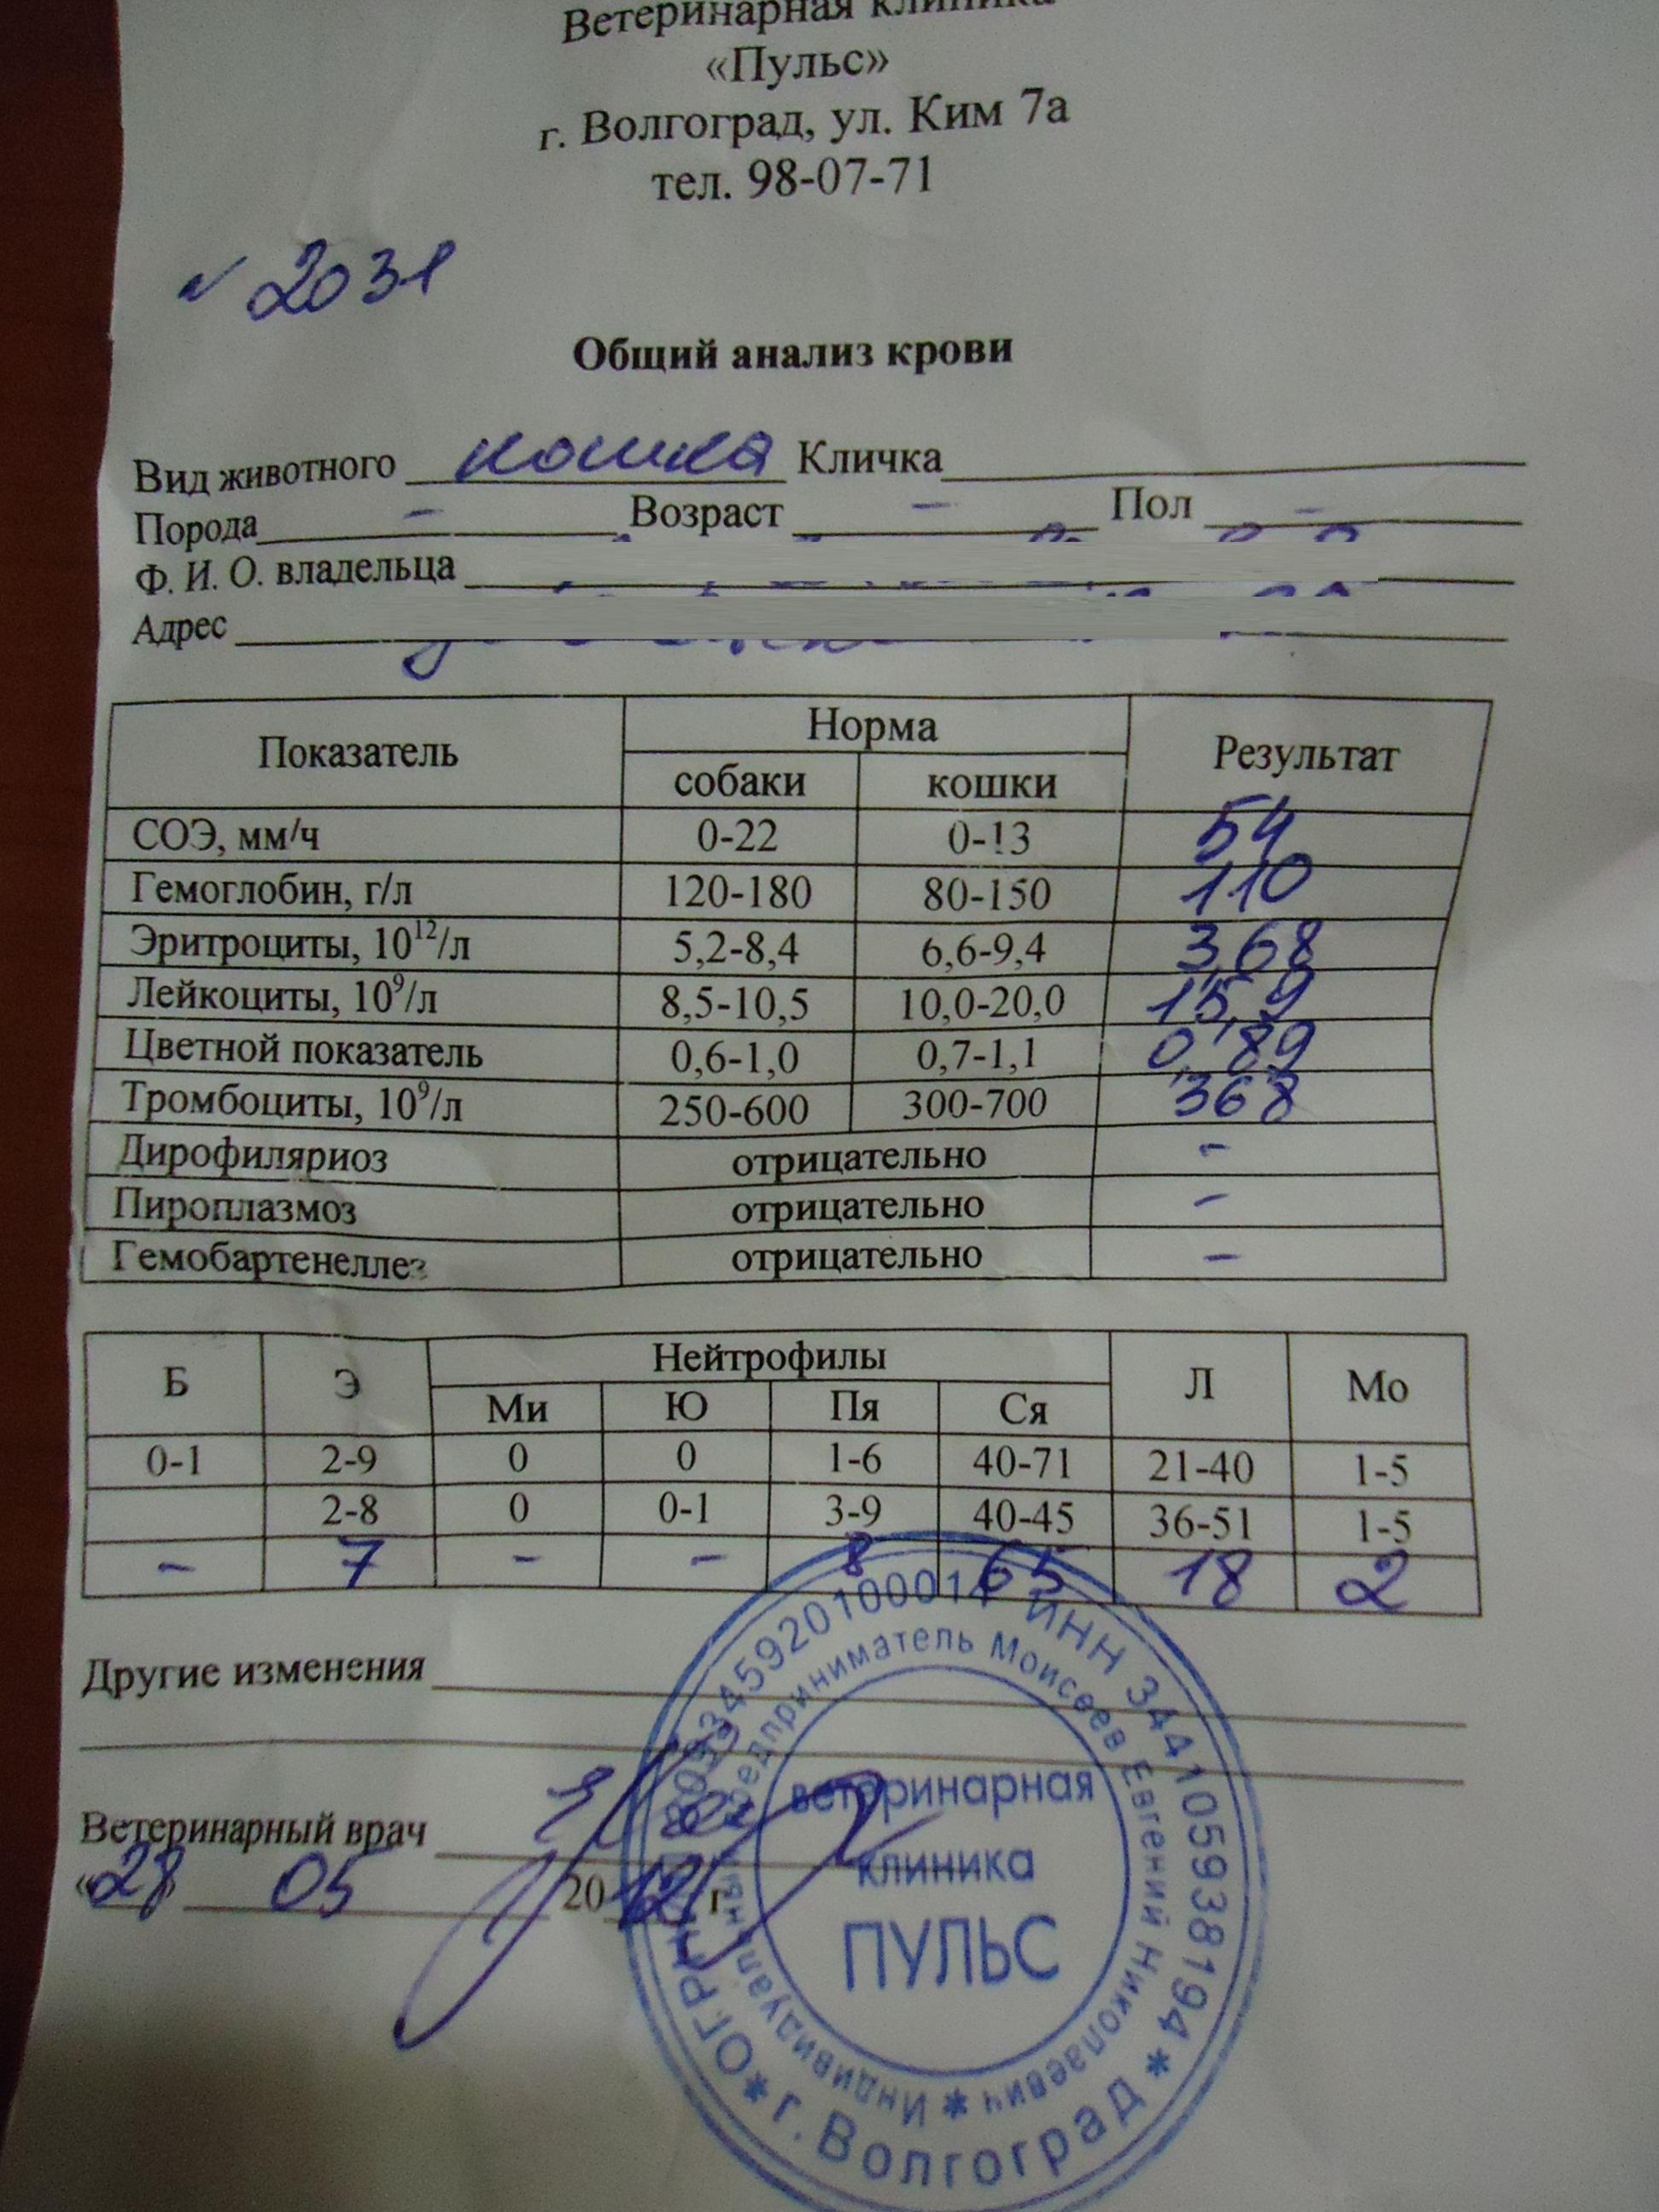 Ветеринарная клиника
«Пульс»
г. Волгоград, ул. Ким 7а
тел. 98-07-71
№ 2031
Общий анализ крови
Вид животного кошка Кличка
Порода - Возраст - Пол -
Ф. И. О. владельца
Адрес
Показатель Норма Результат
собаки кошки
СОЭ, мм/ч 0-22 0-13 54
Гемоглобин, г/л 120-180 80-150 110
Эритроциты, 10¹²/л 5,2-8,4 6,6-9,4 3,68
Лейкоциты, 10⁹/л 8,5-10,5 10,0-20,0 15,9
Цветной показатель 0,6-1,0 0,7-1,1 0,89
Тромбоциты, 10⁹/л 250-600 300-700 368
Дирофиляриоз отрицательно -
Пироплазмоз отрицательно -
Гемобартенеллез отрицательно -
Б Э Нейтрофилы Л Мо
Ми Ю Пя Ся
0-1 2-9 0 0 1-6 40-71 21-40 1-5
2-8 0 0-1 3-9 40-45 36-51 1-5
- 7 - - 8 65 18 2
Другие изменения
Ветеринарный врач
«28» 05 2012 г.
ИНН 344105938194 * г. Волгоград * ОГРН
Индивидуальный предприниматель Моисеев Евгений Николаевич *
ветеринарная
клиника
ПУЛЬС